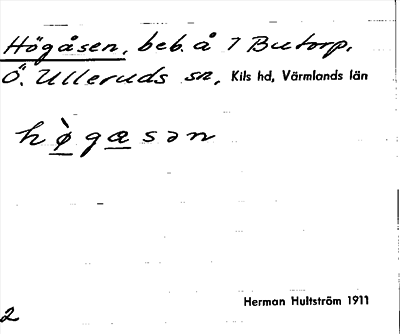 Högåsen, beb. å 7 Butorp,
Ö. Ulleruds sn, Kils hd, Värmlands län
hø̀gæsən
Herman Hultström 1911
2